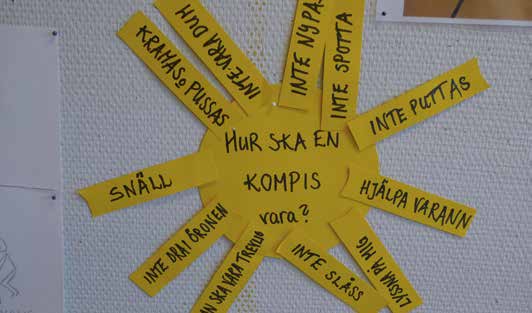 HUR SKA EN
KOMPIS
vara?
INTE NYPA
INTE SPOTTA
INTE PUTTAS
HJÄLPA VARANN
LYSSNA PÅ MIG
INTE SLÅSS
SKA VARA TREVLIG
INTE DRA I ÖRONEN
SNÄLL
KRAMAS O PUSSAS
INTE VARA DUM